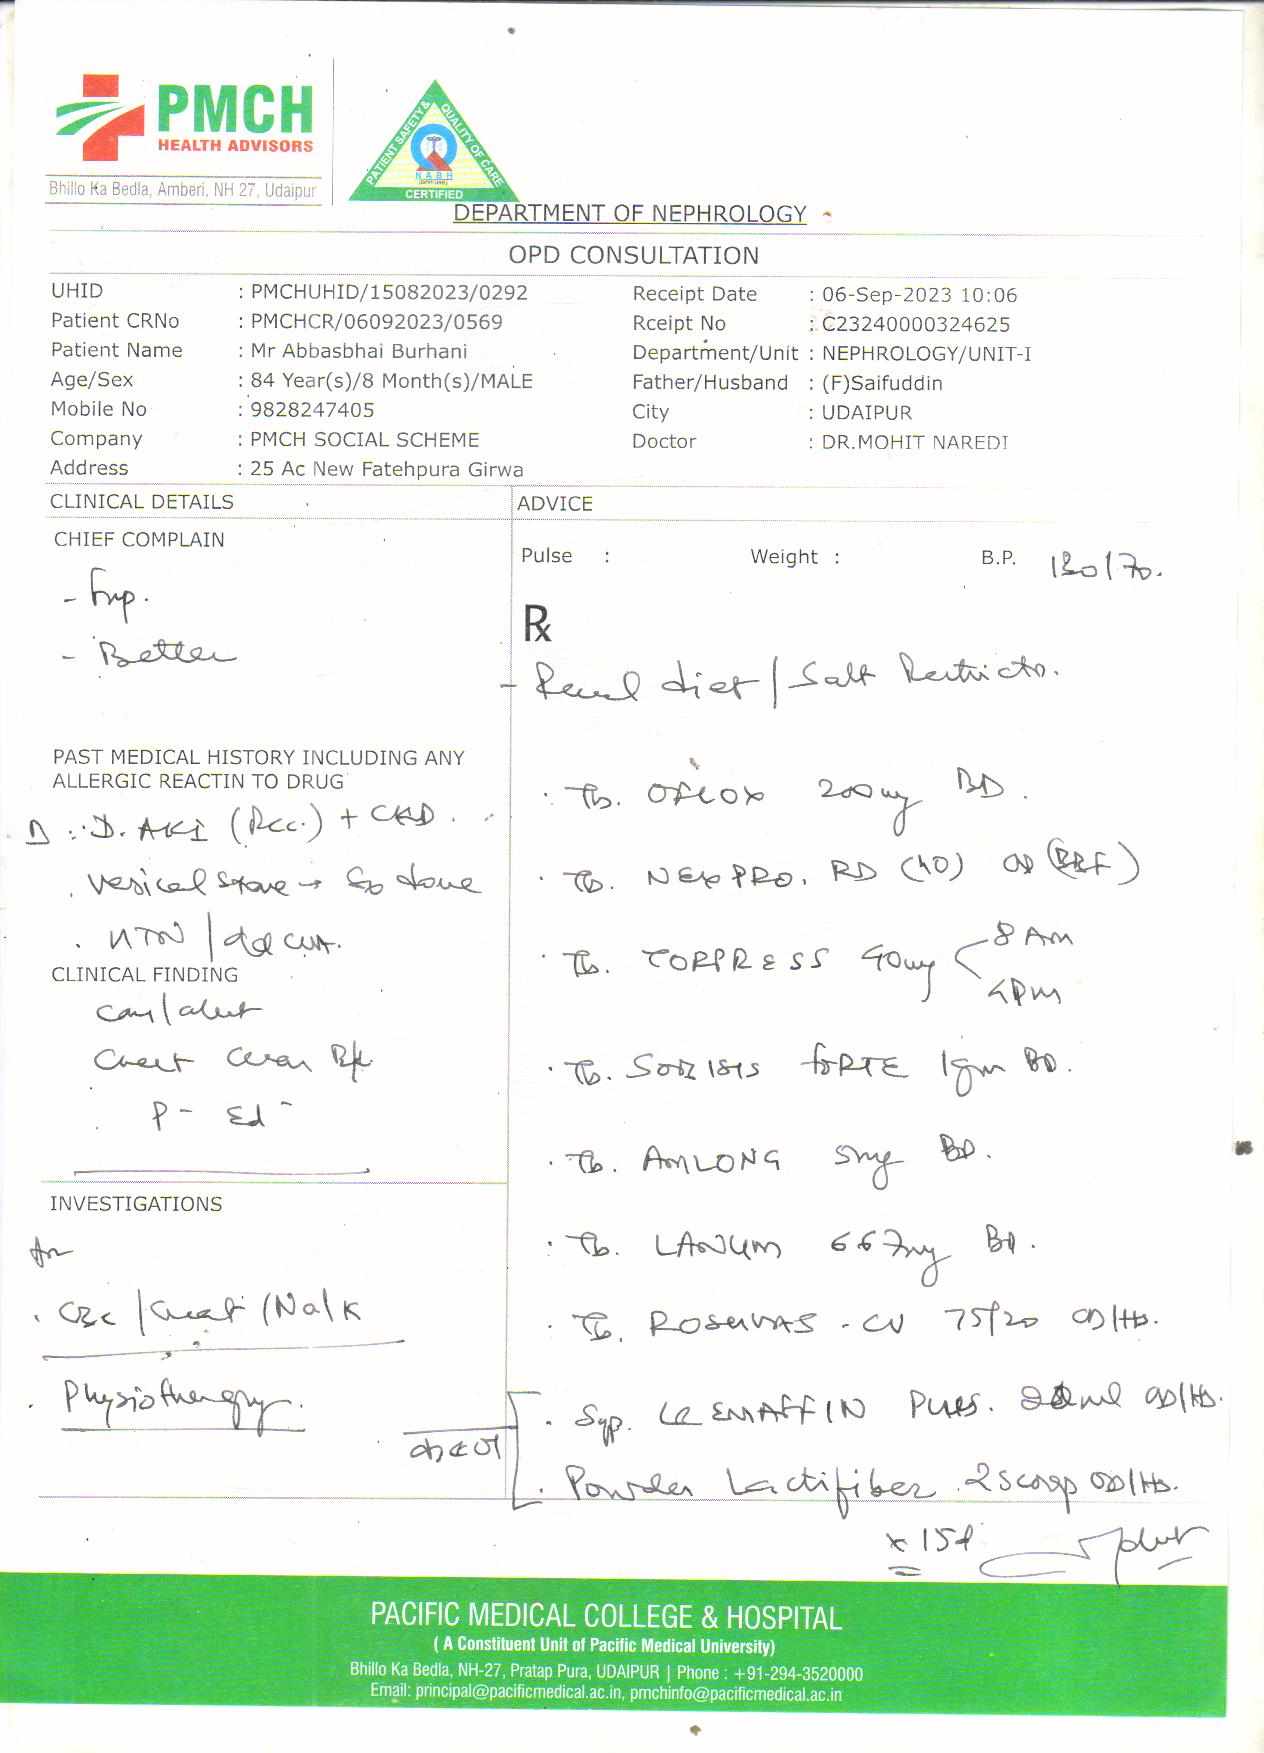 PMCH
HEALTH ADVISORS
Bhillo Ka Bedla, Amberi, NH 27, Udaipur
PATIENT SAFETY & QUALITY OF CARE
NABH
CERTIFIED
DEPARTMENT OF NEPHROLOGY
OPD CONSULTATION
UHID : PMCHUHID/15082023/0292 Receipt Date : 06-Sep-2023 10:06
Patient CRNo : PMCHCR/06092023/0569 Rceipt No : C23240000324625
Patient Name : Mr Abbasbhai Burhani Department/Unit : NEPHROLOGY/UNIT-I
Age/Sex : 84 Year(s)/8 Month(s)/MALE Father/Husband : (F)Saifuddin
Mobile No : 9828247405 City : UDAIPUR
Company : PMCH SOCIAL SCHEME Doctor : DR.MOHIT NAREDI
Address : 25 Ac New Fatehpura Girwa
CLINICAL DETAILS
CHIEF COMPLAIN
- Better
PAST MEDICAL HISTORY INCLUDING ANY
ALLERGIC REACTIN TO DRUG
AKI (Rec.) + CKD.
. Vesical stone → done
. HTN /
CLINICAL FINDING
/alert
Chest
P -
INVESTIGATIONS
. CBC / Creat / Na / K
. Physiotherapy.
ADVICE
Pulse : Weight : B.P. 130/70.
Rx
- Renal diet / Salt Restricto.
. Tb. OFLOX 200mg BD.
. Tb. NEXPRO. RD (40) OD (BBF)
. Tb. TORPRESS 40mg 8 AM
4PM
. Tb. SOBISIS FORTE 1gm BD.
. Tb. AMLONG 5mg BD.
. Tb. LANUM 667mg BD.
. Tb. ROSUVAS - CV 75/20 OD/HS.
. Syp. CREMAFFIN Plus. OD/HS.
. Powder Lactifiber 2 scoop OD/HS.
x 15d
PACIFIC MEDICAL COLLEGE & HOSPITAL
( A Constituent Unit of Pacific Medical University)
Bhillo Ka Bedla, NH-27, Pratap Pura, UDAIPUR | Phone : +91-294-3520000
Email: principal@pacificmedical.ac.in, pmchinfo@pacificmedical.ac.in